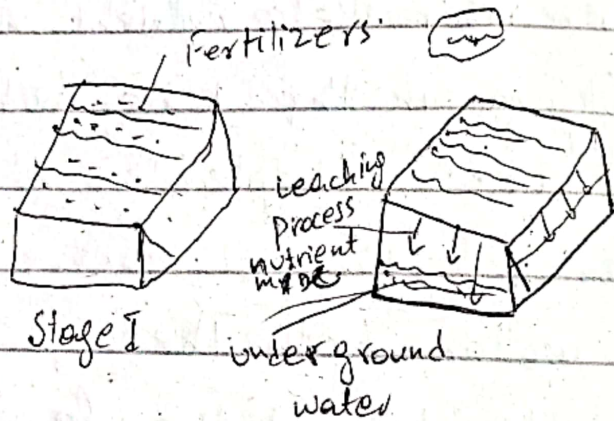 Fertilizers
Leaching
process
nutrient
Stage I
underground
water